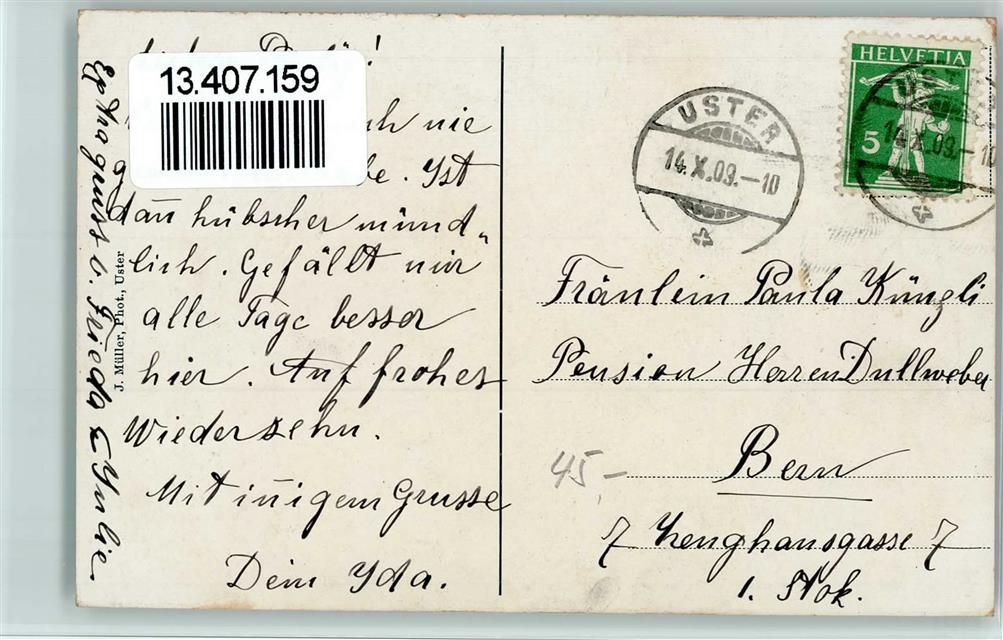 13.407.159
nie
be. Ist
dañ hübscher münd„
lich. Gefällt mir
alle Tage besser
hier. Auf frohes
Wiedersehn.
Mit iñigem Grusse
Dein Ida.
gruss v. Frieda & Julie
J. Müller, Phot., Uster
USTER
14.X.09.–10
HELVETIA
5
14.X.09.–10
Fräulein Paula Künzli
Pension Herren Dullweber
Bern
7 Zeughausgasse 7
1. Stok.
45,-